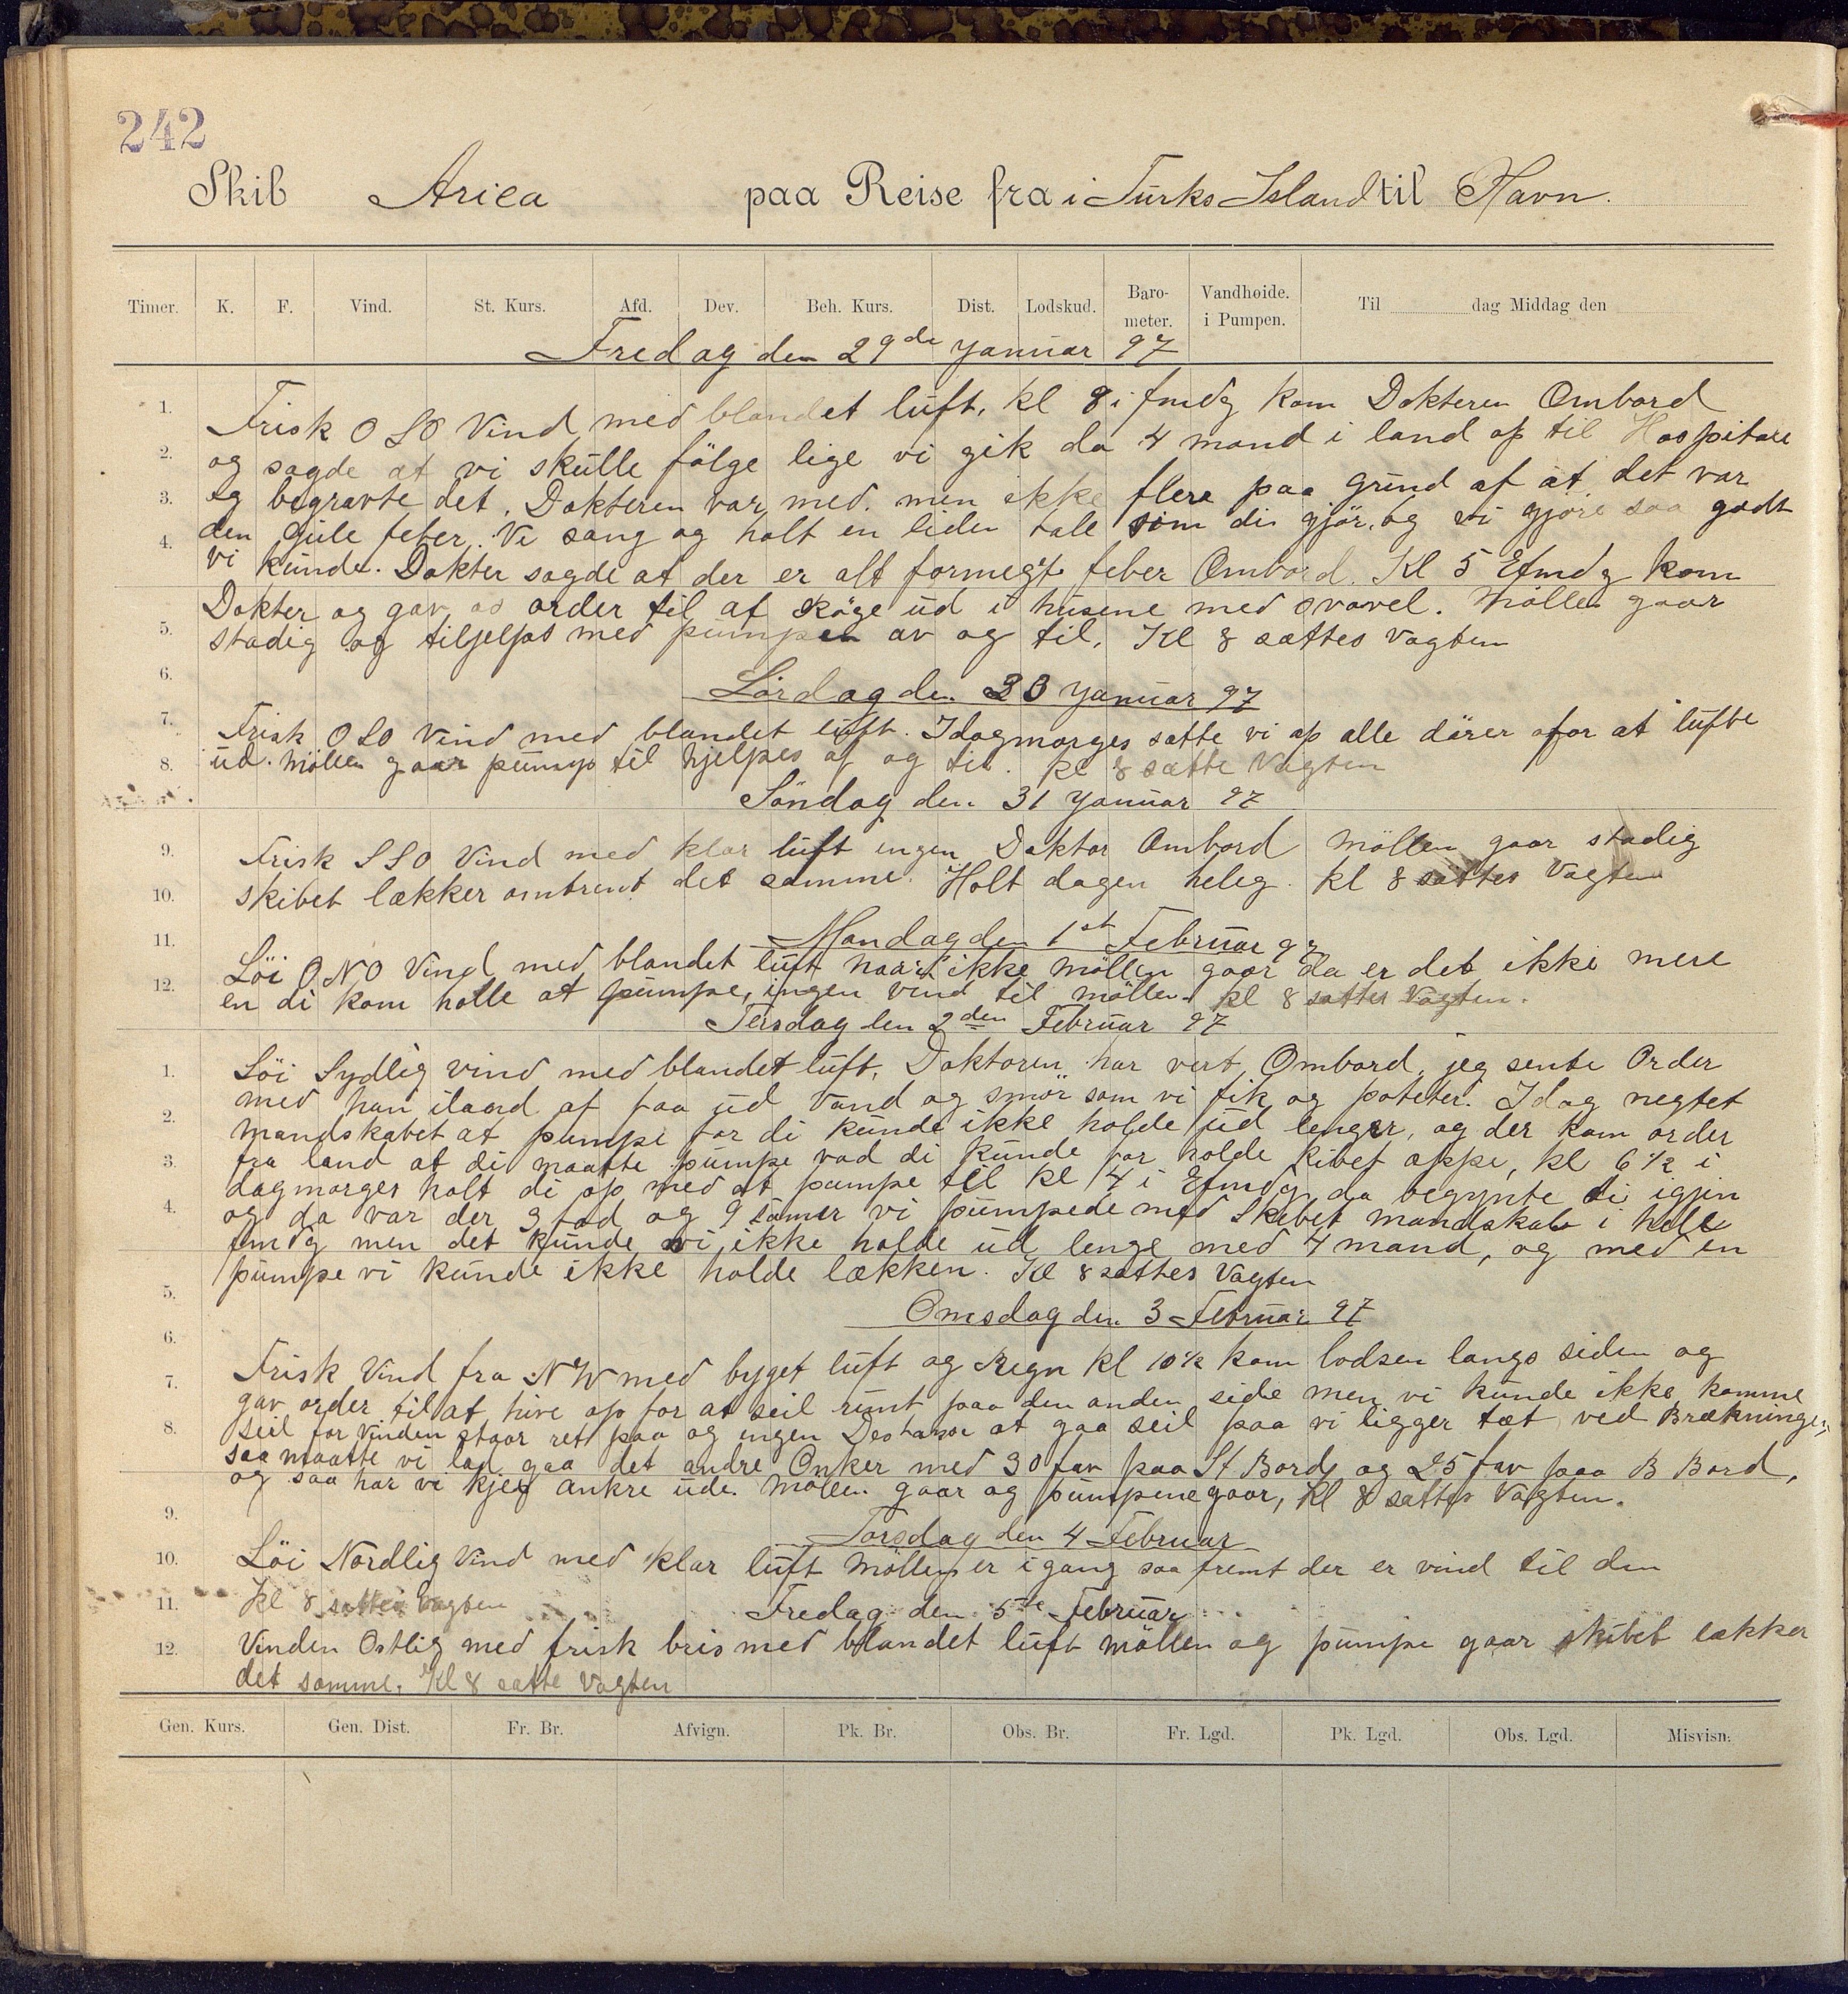 242
Skib Arica paa Reise fra i Turks Island til Havn.
Timer. K. F. Vind. St. Kurs. Afd. Dev. Beh. Kurs. Dist. Lodskud. Baro-meter. Vandhøide. i Pumpen. Til dag Middag den
Fredag den 29de Januar 97
1.
Frisk OSO Vind med blandet luft, kl 8 i fmdg kom Dokteren Ombord
2.
og sagde at vi skulle fölge lige vi gik da 4 mand i land op til Hospitale
3.
og begravte det. Dokteren var med. men ikke flere paa grund af at det var
den gule feber. Vi sang og holt en liden tale som di gjör, og vi gjore saa godt
4.
vi kunde. Dokter sagde at der er alt formegt feber Ombord. Kl 5 Efmdg kom
Dokter og gav os order til at Röge ud i husene med svovel. Möllen gaar
5.
stadig og tiljelpes med pumpen av og til. Kl 8 sattes Vagten
6.
Lördag den 30 Januar 97
7.
Frisk OSO Vind med blandet luft. Idagmorges satte vi op alle dörer for at lufte
8.
ud. Möllen gaar pump til hjelpes af og til. kl 8 satte Vagten
Söndag den 31 Januar 97
9.
Frisk SSO Vind med klar luft ingen Doktor Ombord Möllen gaar stadig
10.
skibet lækker omtrent det samme. Holt dagen heleg. kl 8 sattes Vagten
11.
Mandag den 1st Februar 97
Löi ONO Vind med blandet luft naar ikke Möllen gaar da er det ikke mere
12.
en di kom holle at pumpe, ingen vind til möllen kl 8 sattes Vagten.
Tersdag den 2den Februar 97
1.
Löi Sydlig vind med blandet luft, Doktoren har vert Ombord, jeg sente Order
med han iland at faa ud Vand og smör som vi fik og poteter. Idag negtet
2.
mandskabet at pumpe for di kunde ikke holde ud lenger, og der kom order
3.
fra land at di maatte pumpe vad di kunde for holde kibet oppe, kl 6 1/2 i
dagmorges holt di op med at pumpe til kl 4 i Efmdg da begynte di igjin
4.
og da var der 9 fod og 9 tomer vi pumpede med skibet mandskab i hele
fmdg men det kunde vi ikke holde ud lenge med 4 mand, og med en
pumpe vi kunde ikke holde lækken. Kl 8 sattes Vagten
5.
Onsdag den 3 Februar 97
6.
Frisk Vind fra NW med byget luft og Regn kl 10 1/2 kom lodsen langs siden og
7.
gav order til at hive op for at seil runt paa den anden side men vi kunde ikke komme
8.
seil for Vinden staar ret paa og ingen Destanse at gaa seil paa vi ligger tæt ved Brækningen
saa maatte vi lad gaa det andre Onker med 30 fav paa St Bord og 25 fav paa B Bord,
og saa har vi ankre ude. Möllen gaar og pumpene gaar, Kl 8 sattes Vagten.
9.
Torsdag den 4 Februar
10.
Löi Nordlig Vind med klar luft Möllen er igang saa fremt der er vind til den
11.
Kl 8 sattes Vagten
Fredag den 5te Februar
12.
Vinden Ostlig med frisk bris med blandet luft möllen og pumpe gaar skibet lækker
det samme. Kl 8 satte Vagten
Gen. Kurs. Gen. Dist. Fr. Br. Afvign. Pk. Br. Obs. Br. Fr. Lgd. Pk. Lgd. Obs. Lgd. Misvisn.